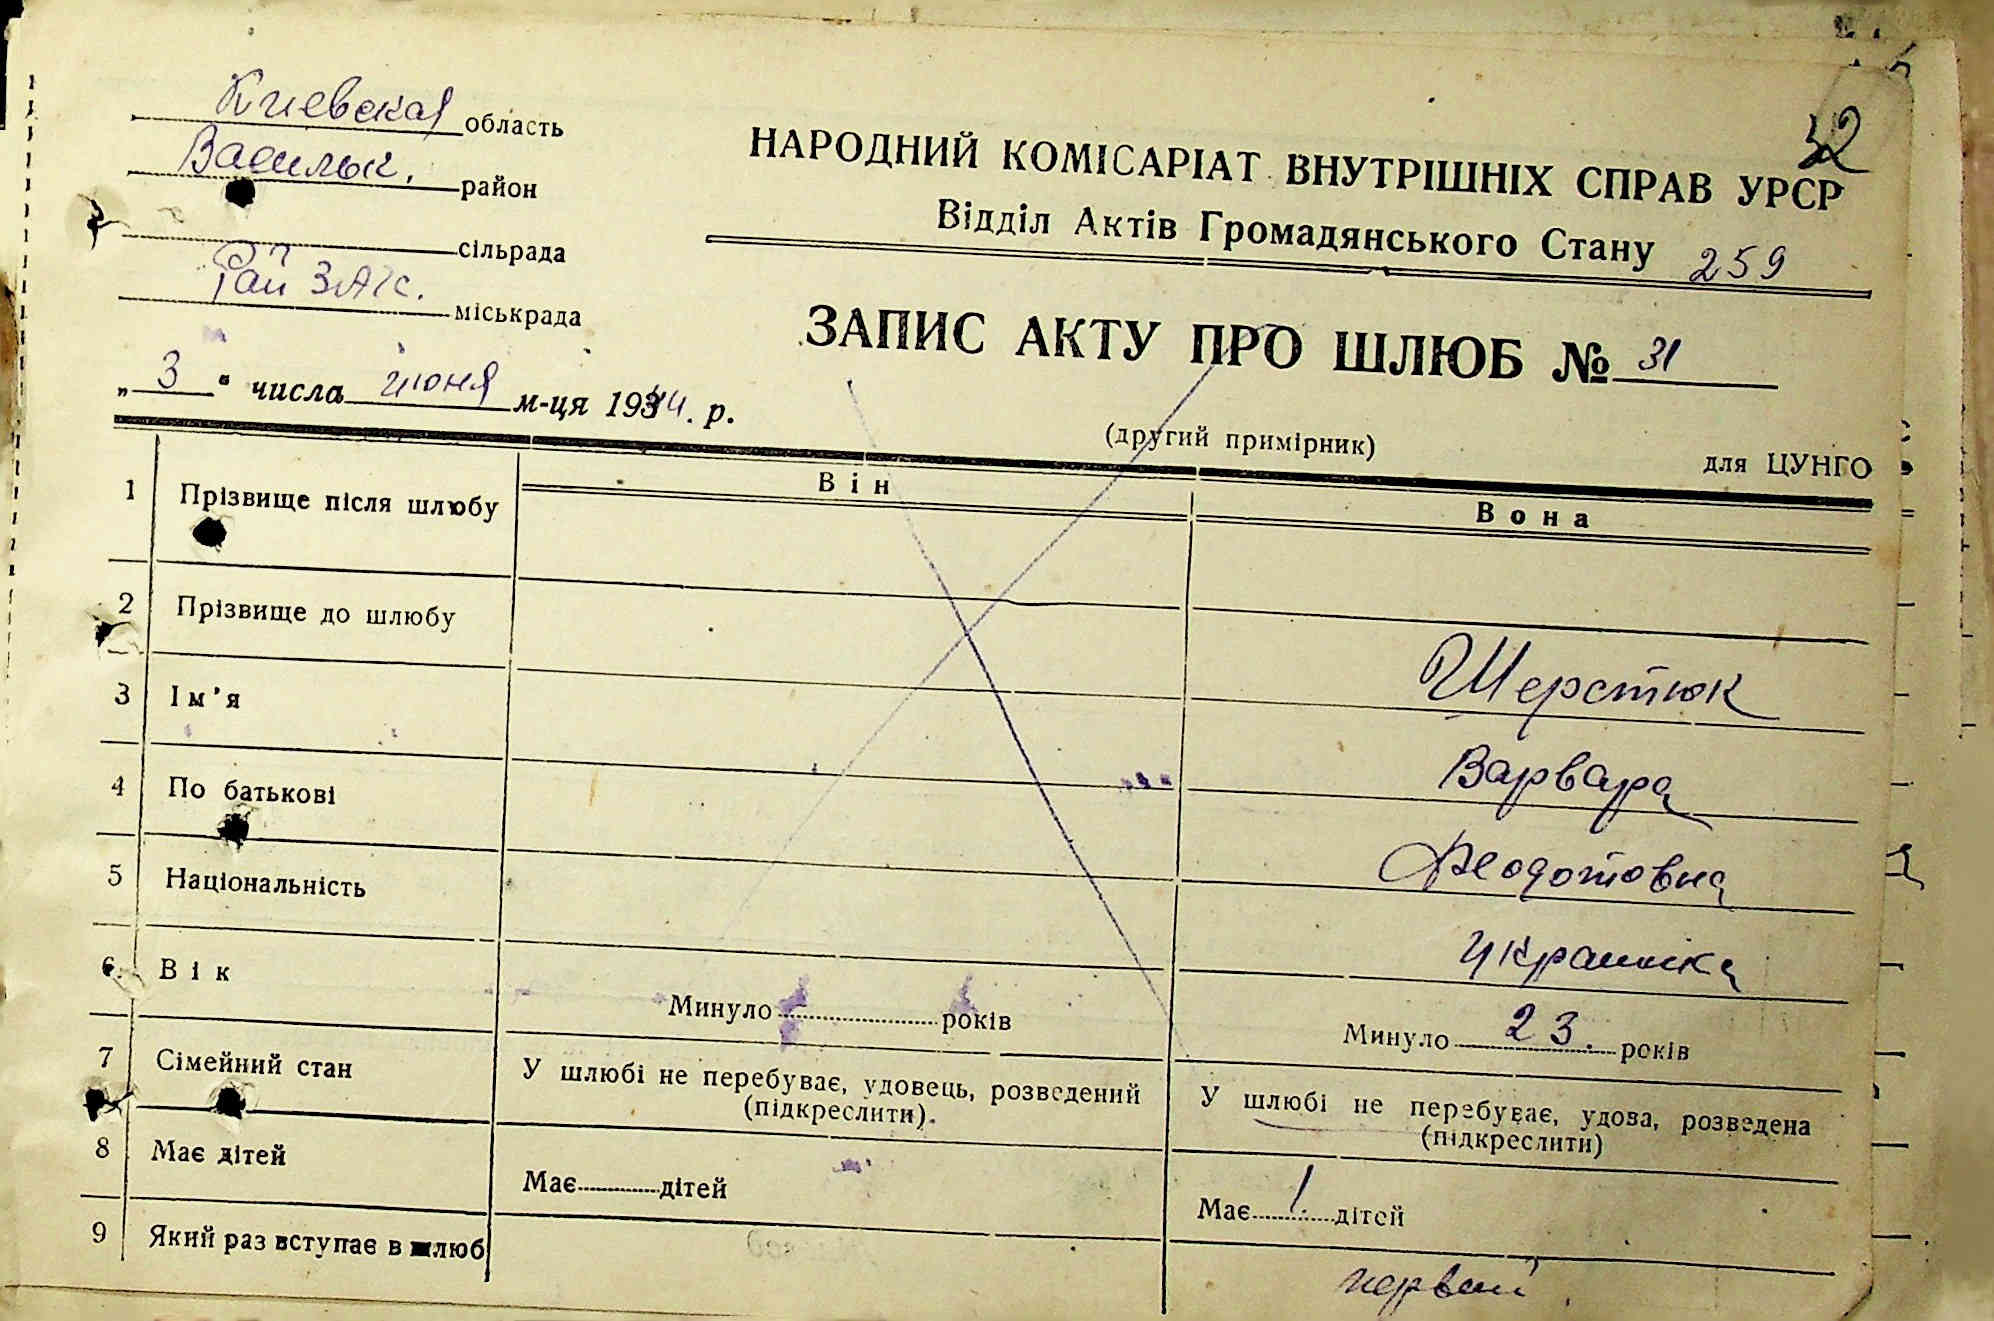 Киевская область
Васильк. район
сільрада
Рай ЗАГС. міськрада
„ 3 " числа июня м-ця 1944. р.
32
НАРОДНИЙ КОМІСАРІАТ ВНУТРІШНІХ СПРАВ УРСР
Відділ Актів Громадянського Стану 259
ЗАПИС АКТУ ПРО ШЛЮБ № 31
(другий примірник)
для ЦУНГО
Він
Вона
1 Прізвище після шлюбу
2 Прізвище до шлюбу
Шерстюк
3 Ім'я
Варвара
4 По батькові
Феодотовна
5 Національність
украинка
6 Вік
Минуло ........ років
Минуло 23. років
7 Сімейний стан
У шлюбі не перебуває, удовець, розведений
(підкреслити).
У шлюбі не перебуває, удова, розведена
(підкреслити)
8 Має дітей
Має ........ дітей
Має 1 дітей
9 Який раз вступає в шлюб
первый